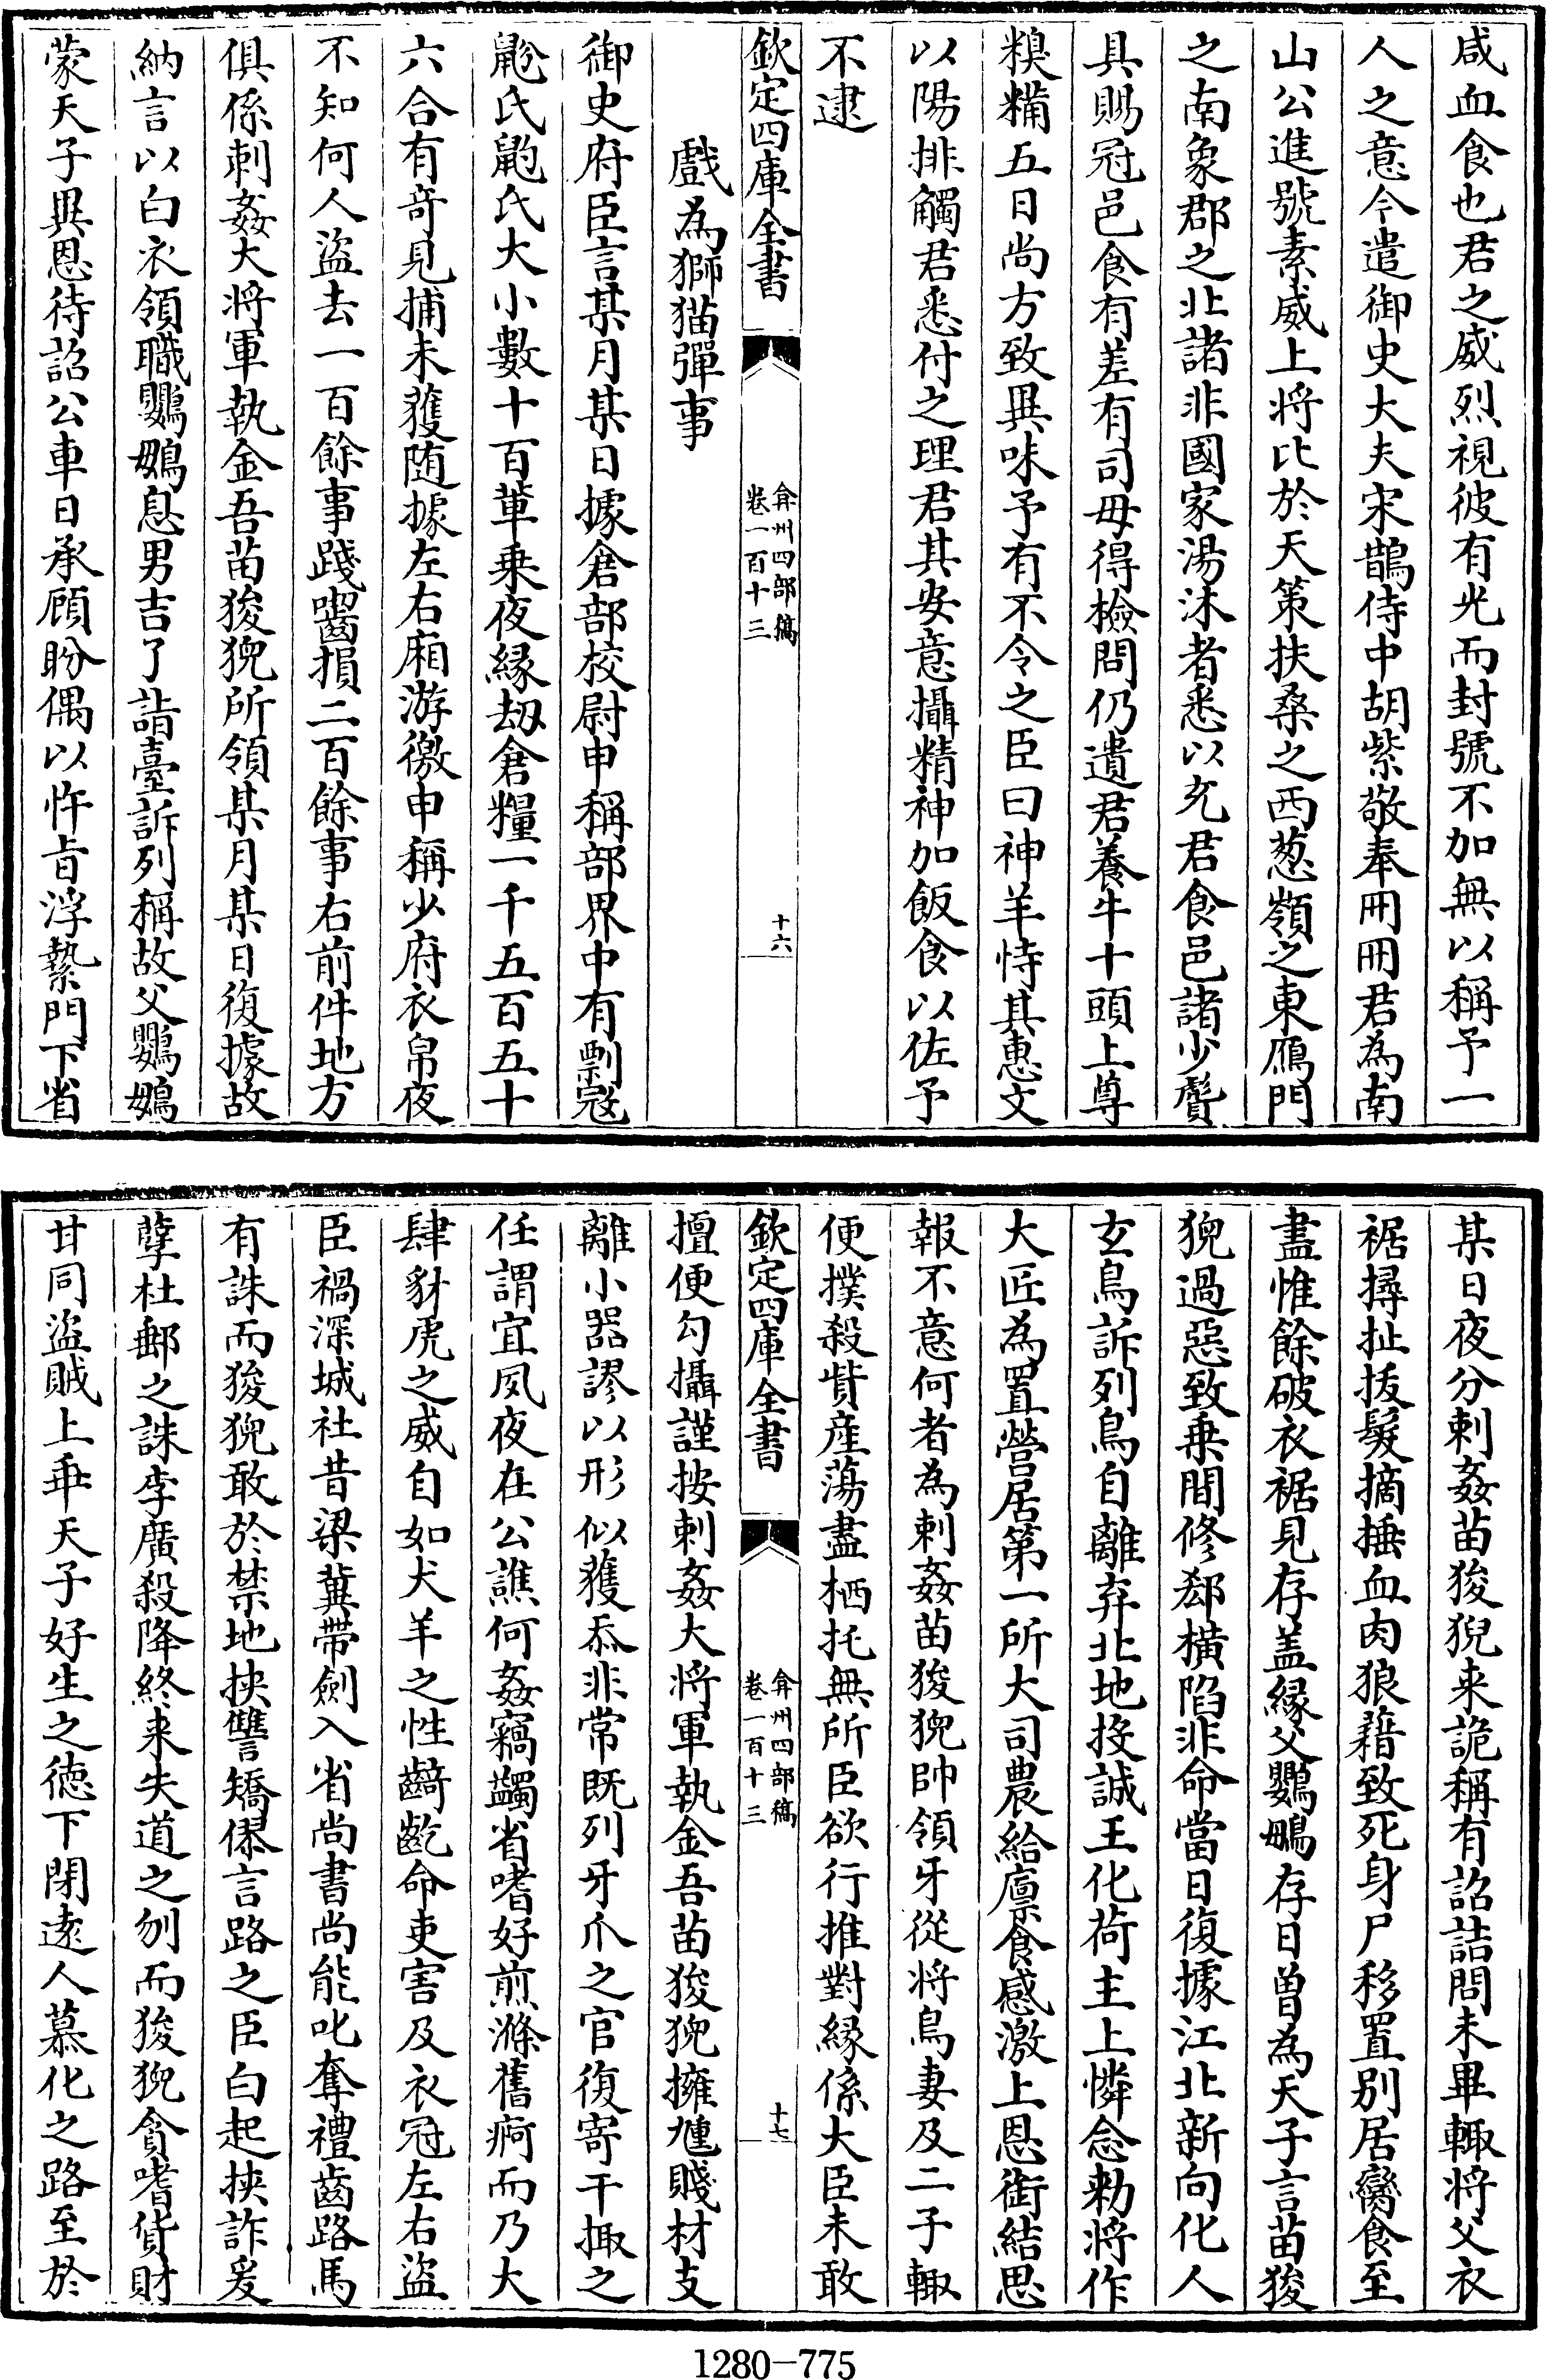 咸血食也君之威烈視彼有光而封號不加無以稱予一
人之意今遣御史大夫宋鵲侍中胡紫敬奉冊冊君為南
山公進號素威上將比於天策扶桑之西葱嶺之東鴈門
之南象郡之北諸非國家湯沐者悉以充君食邑諸少鬢
具賜冠邑食有差有司毋得檢問仍遺君養牛十頭上尊
糗糒五日尚方致異味予有不令之臣曰神羊恃其惠文
以陽排觸君悉付之理君其安意攝精神加飯食以佐予
不逮
欽定四庫全書
弇州四部稿
卷一百十三
十六
戲為獅猫彈事
御史府臣言某月某日據倉部校尉申稱部界中有剽寇
鼢氏鼩氏大小數十百輩乗夜縁刧倉糧一千五百五十
六合有奇見捕未獲随據左右廂游徼申稱少府衣帛夜
不知何人盗去一百餘事踐嚙損二百餘事右前件地方
俱係刺姦大将軍執金吾苗狻猊所領某月某日復據故
納言以白衣領職鸚鵡息男吉了詣臺訴列稱故父鸚鵡
蒙天子異恩待詔公車日承顧盼偶以忤旨浮縶門下省
某日夜分刺姦苗狻猊来詭稱有詔詰問未畢輙将父衣
裾撏扯拔髮摘捶血肉狼藉致死身尸移置别居臠食至
盡惟餘破衣裾見存盖縁父鸚鵡存日曽為天子言苗狻
猊過惡致乗間修郄横陷非命當日復據江北新向化人
玄鳥訴列鳥自離弃北地投誠王化荷主上憐念勅将作
大匠為置營居第一所大司農給廪食感激上恩銜結思
報不意何者為刺姦苗狻猊帥領牙從将鳥妻及二子輙
便撲殺貲産蕩盡栖托無所臣欲行推對縁係大臣未敢
欽定四庫全書
弇州四部稿
卷一百十三
十七
擅便勾攝謹按刺姦大将軍執金吾苗狻猊擁尰賤材支
離小器謬以形似獲忝非常既列牙爪之官復寄干掫之
任謂宜夙夜在公譙何姦竊蠲省嗜好煎滌舊痾而乃大
肆豺虎之威自如犬羊之性齮齕命吏害及衣冠左右盗
臣禍深城社昔梁冀帶劍入省尚書尚能叱奪禮齒路馬
有誅而狻猊敢於禁地挟讐矯傺言路之臣白起挟詐爰
孽杜郵之誅李廣殺降終来失道之刎而狻猊貪嗜貨財
甘同盗賊上乖天子好生之徳下閉逺人慕化之路至於
1280-775